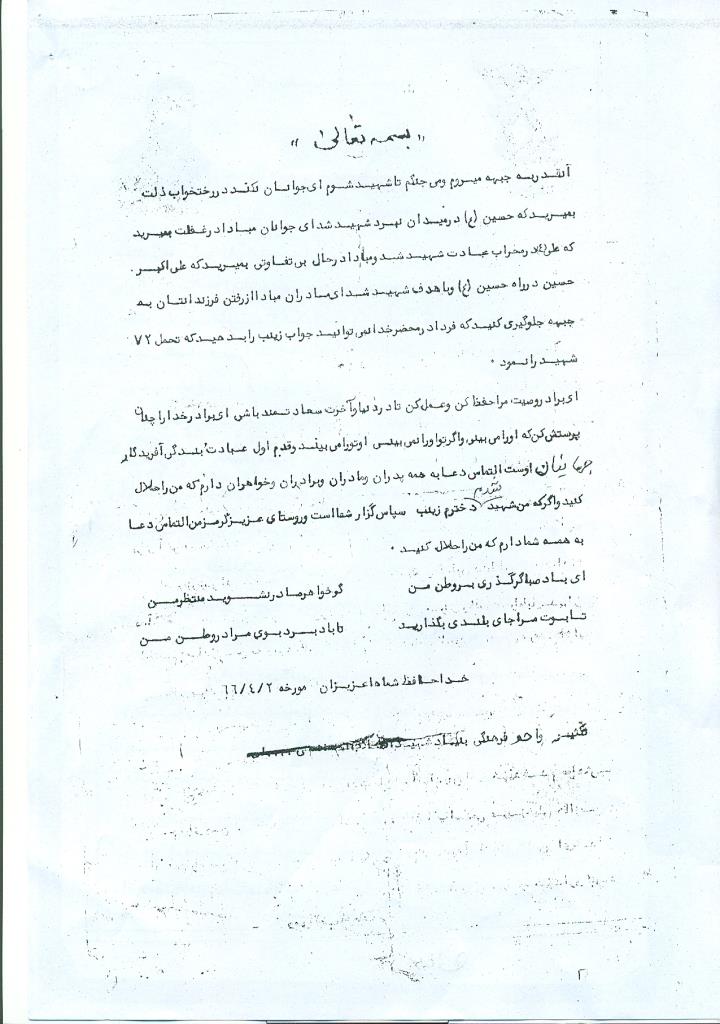 «بسمه تعالی»
آنقدر به جبهه میروم ومی جنگم تا شهید شوم ای جوانان نکند در رختخواب ذلت
بمیرید که حسین (ع) در میدان نبرد شهید شد ای جوانان مبادا در غفلت بمیرید
که علی (ع) در محراب عبادت شهید شد ومبادا در حال بی تفاوتی بمیرید که علی اکبر
حسین در راه حسین (ع) وباهدف شهید شد ای مادران مبادا از رفتن فرزندانتان به
جبهه جلوگیری کنید که فردا در محضر خدا نمی توانید جواب زینب را بدهید که تحمل ۷۲
شهید را نمود .
ای برادر وصیت مرا حفظ کن وعمل کن تا در دنیا وآخرت سعادتمند باشی ای برادر خدا را چنان
پرستش کن که او را می بینی واگر تو او را نمی بینی او تو را می بیند وقدم اول عبادت بندگی آفریدگار
جهانیان اوست التماس دعا به همه پدران ومادران وبرادران وخواهران دارم که من را حلال
کنید واگر که من شهید شدم دخترم زینب سپاس گزار شما است وروستای عزیز گرمز من التماس دعا
به همه شما دارم که من را حلال کنید .
ای باد صبا گر گذری بر وطن من گو خواهر مادر نشوید منتظر من
تابوت مرا جای بلندی بگذارید تا باد برد بوی مرا در وطن من
خداحافظ شما عزیزان مورخه ۶۶/۴/۲
تکثیر واحد فرهنگی بنیاد شهید
۲